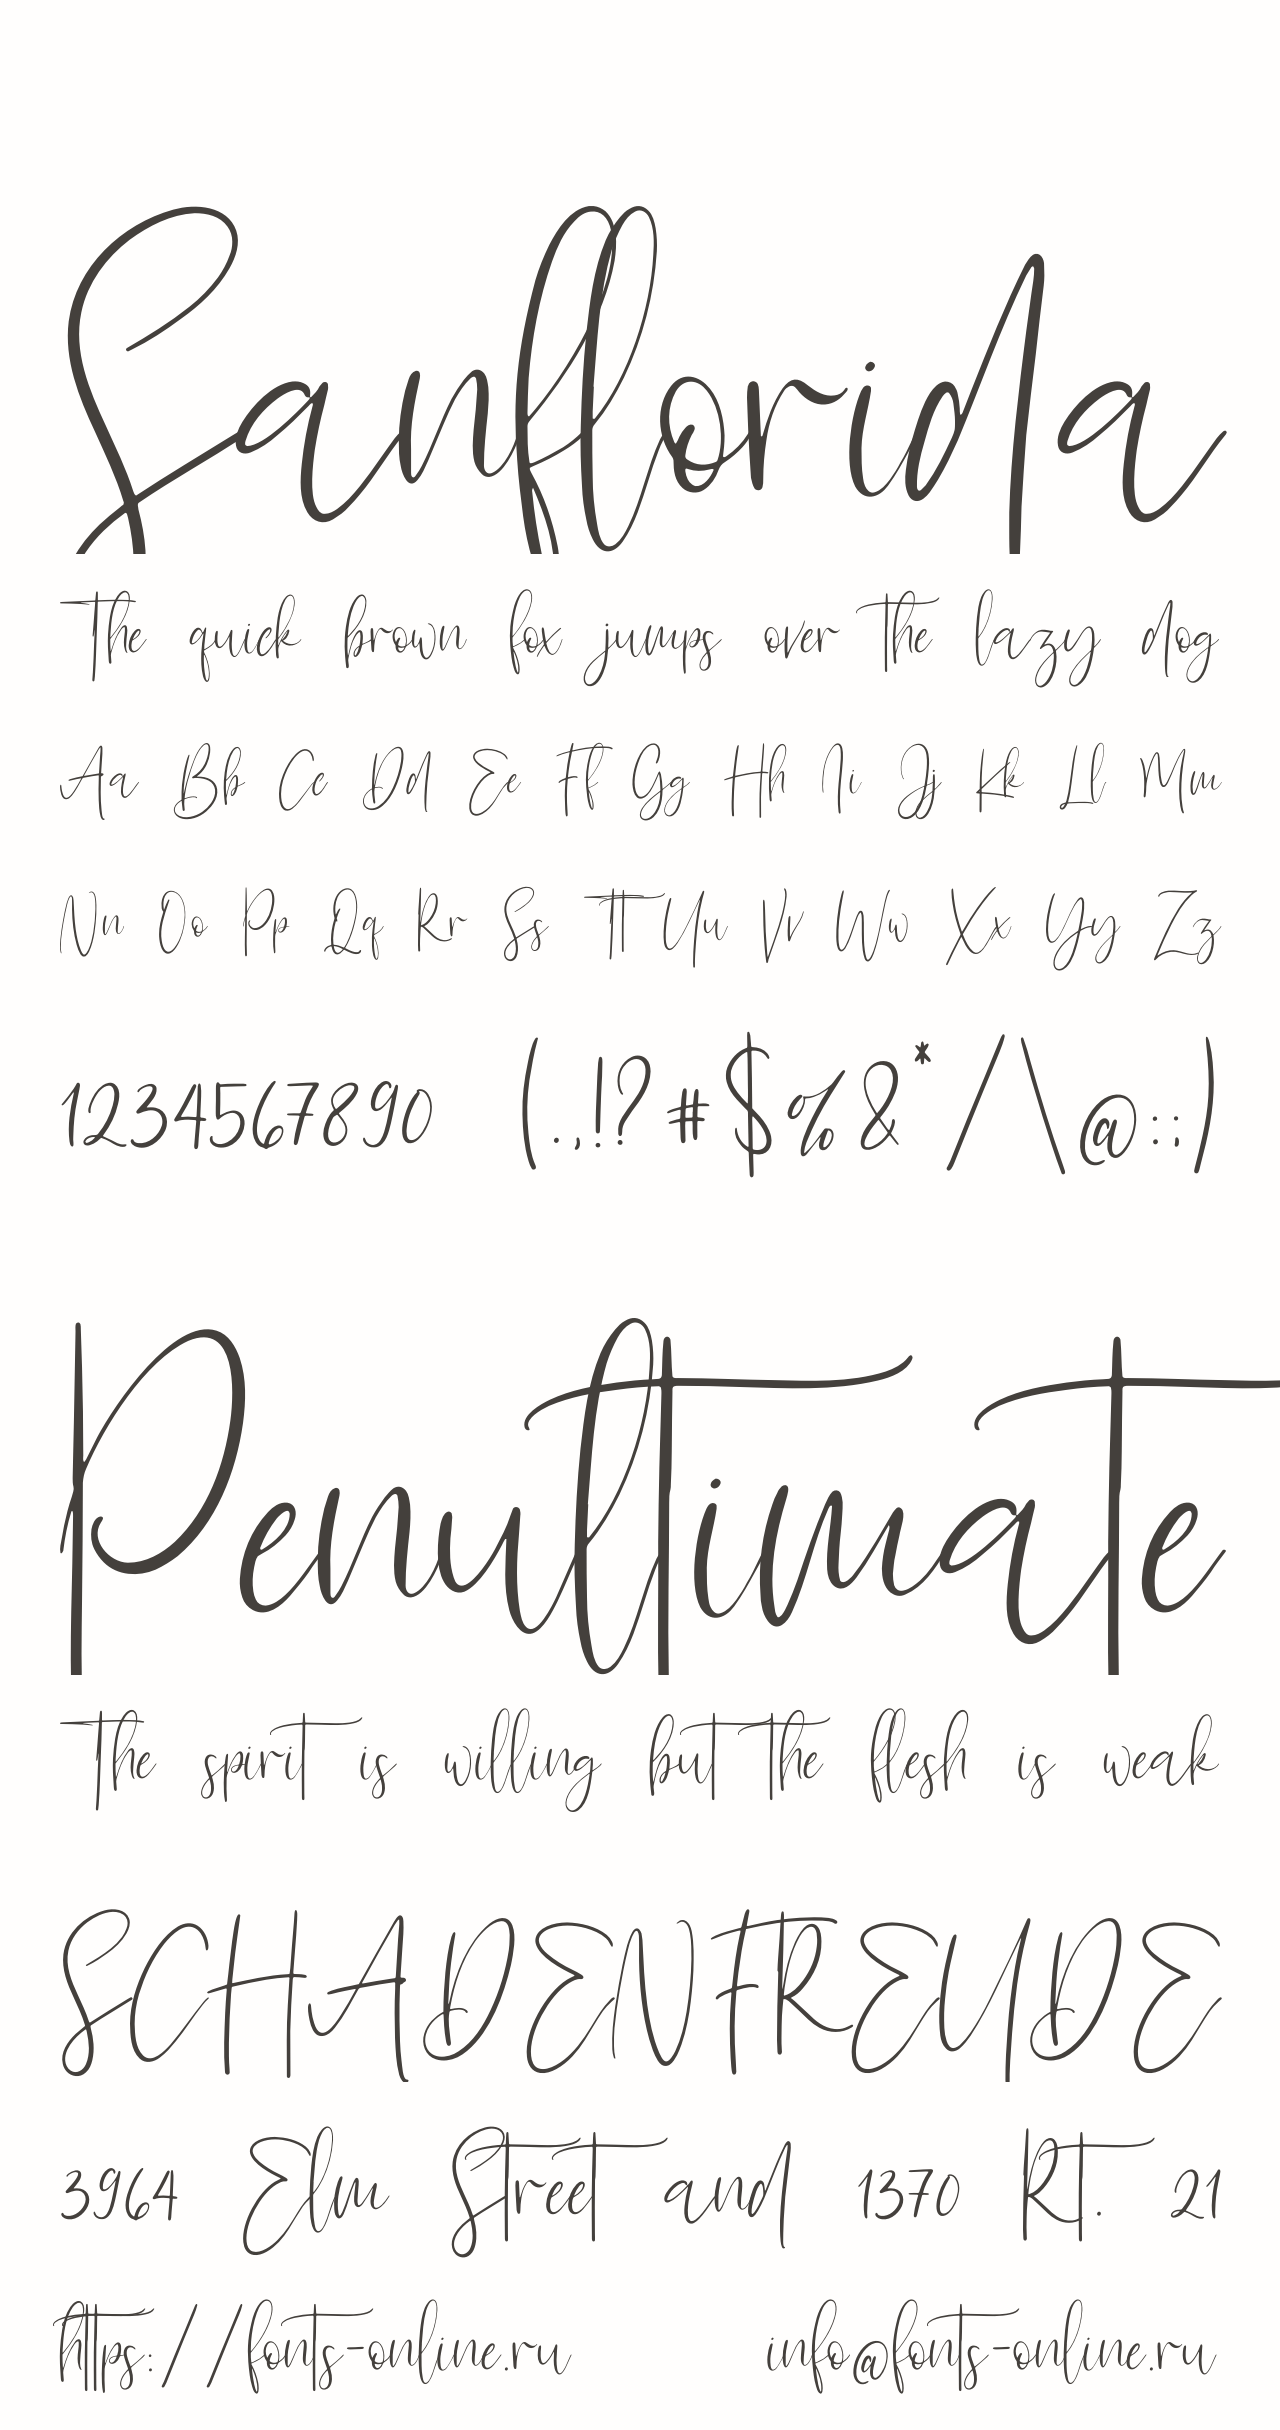 Sanflorida
The quick brown fox jumps over the lazy dog
Aa Bb Cc Dd Ee Ff Gg Hh Ii Jj Kk Ll Mm
Nn Oo Pp Qq Rr Ss Tt Uu Vv Ww Xx Yy Zz
1234567890 (.,!?#$%&*/\@:;)
Penultimate
The spirit is willing but the flesh is weak
SCHADENFREUDE
3964 Elm Street and 1370 Rt. 21
https://fonts-online.ru info@fonts-online.ru